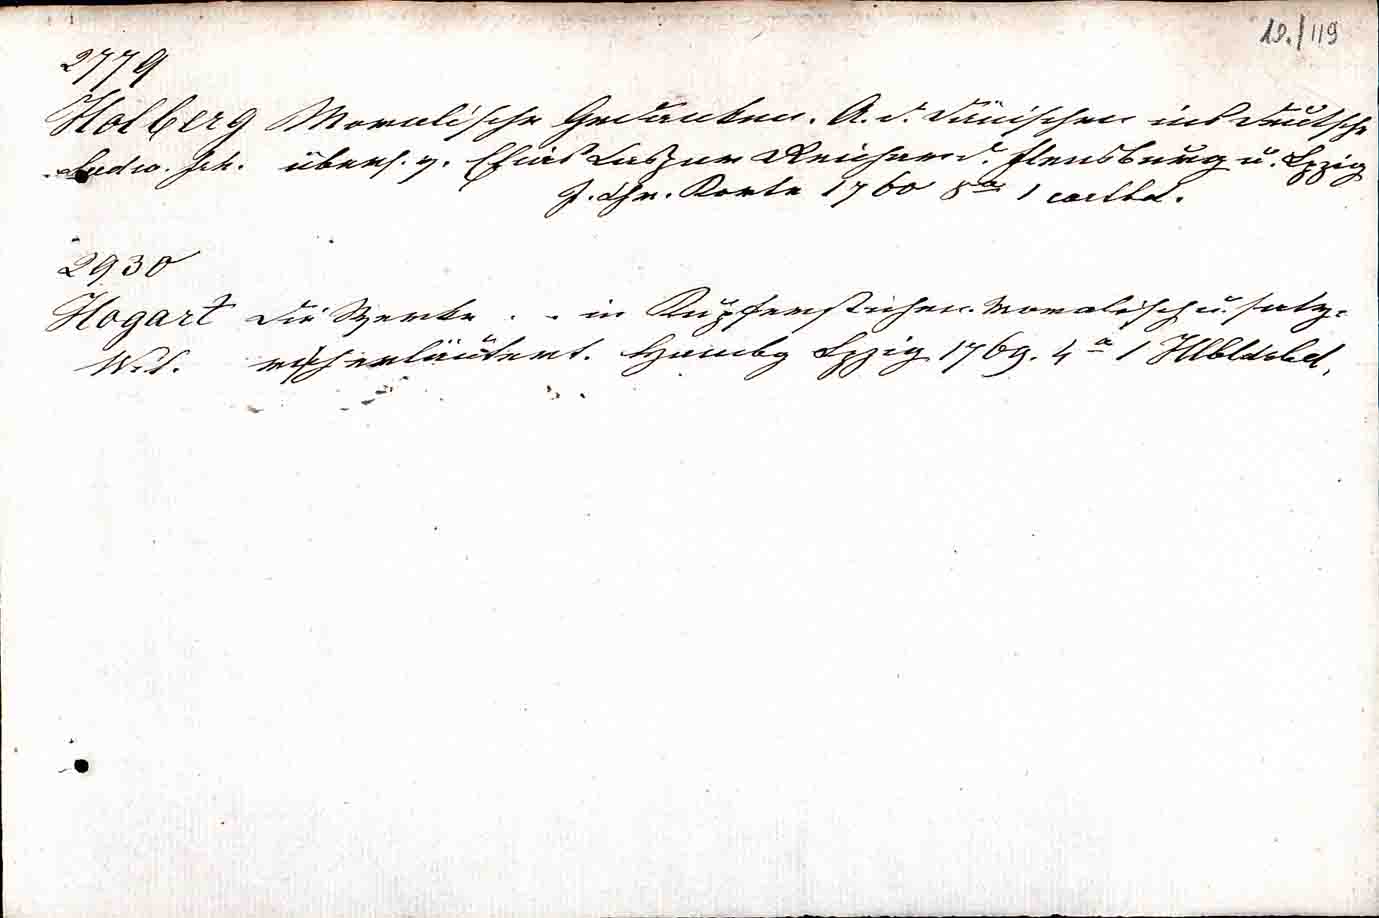 19./119
2779
Holberg Moralische Gedanken. A. d. Dänischen ins Deutsche
Ludw. übers. v. Elias Caspar Reichard. Flensburg u. Lpzig
J. Chr. Korte 1760 8° 1 cartbd.
2930
Hogart Die Werke . . in Kupferstichen. Moralisch u. saty-
Wil. risch erläutert. Hambg Lpzig 1769. 4° 1 Hlbldrbd.